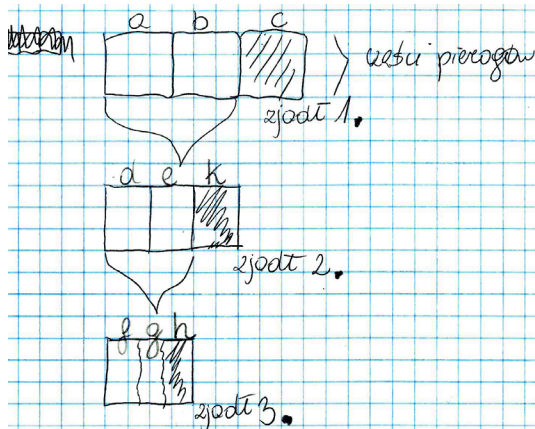 a b c
części pierogów
zjadł 1.
d e k
zjadł 2.
f g h
zjadł 3.